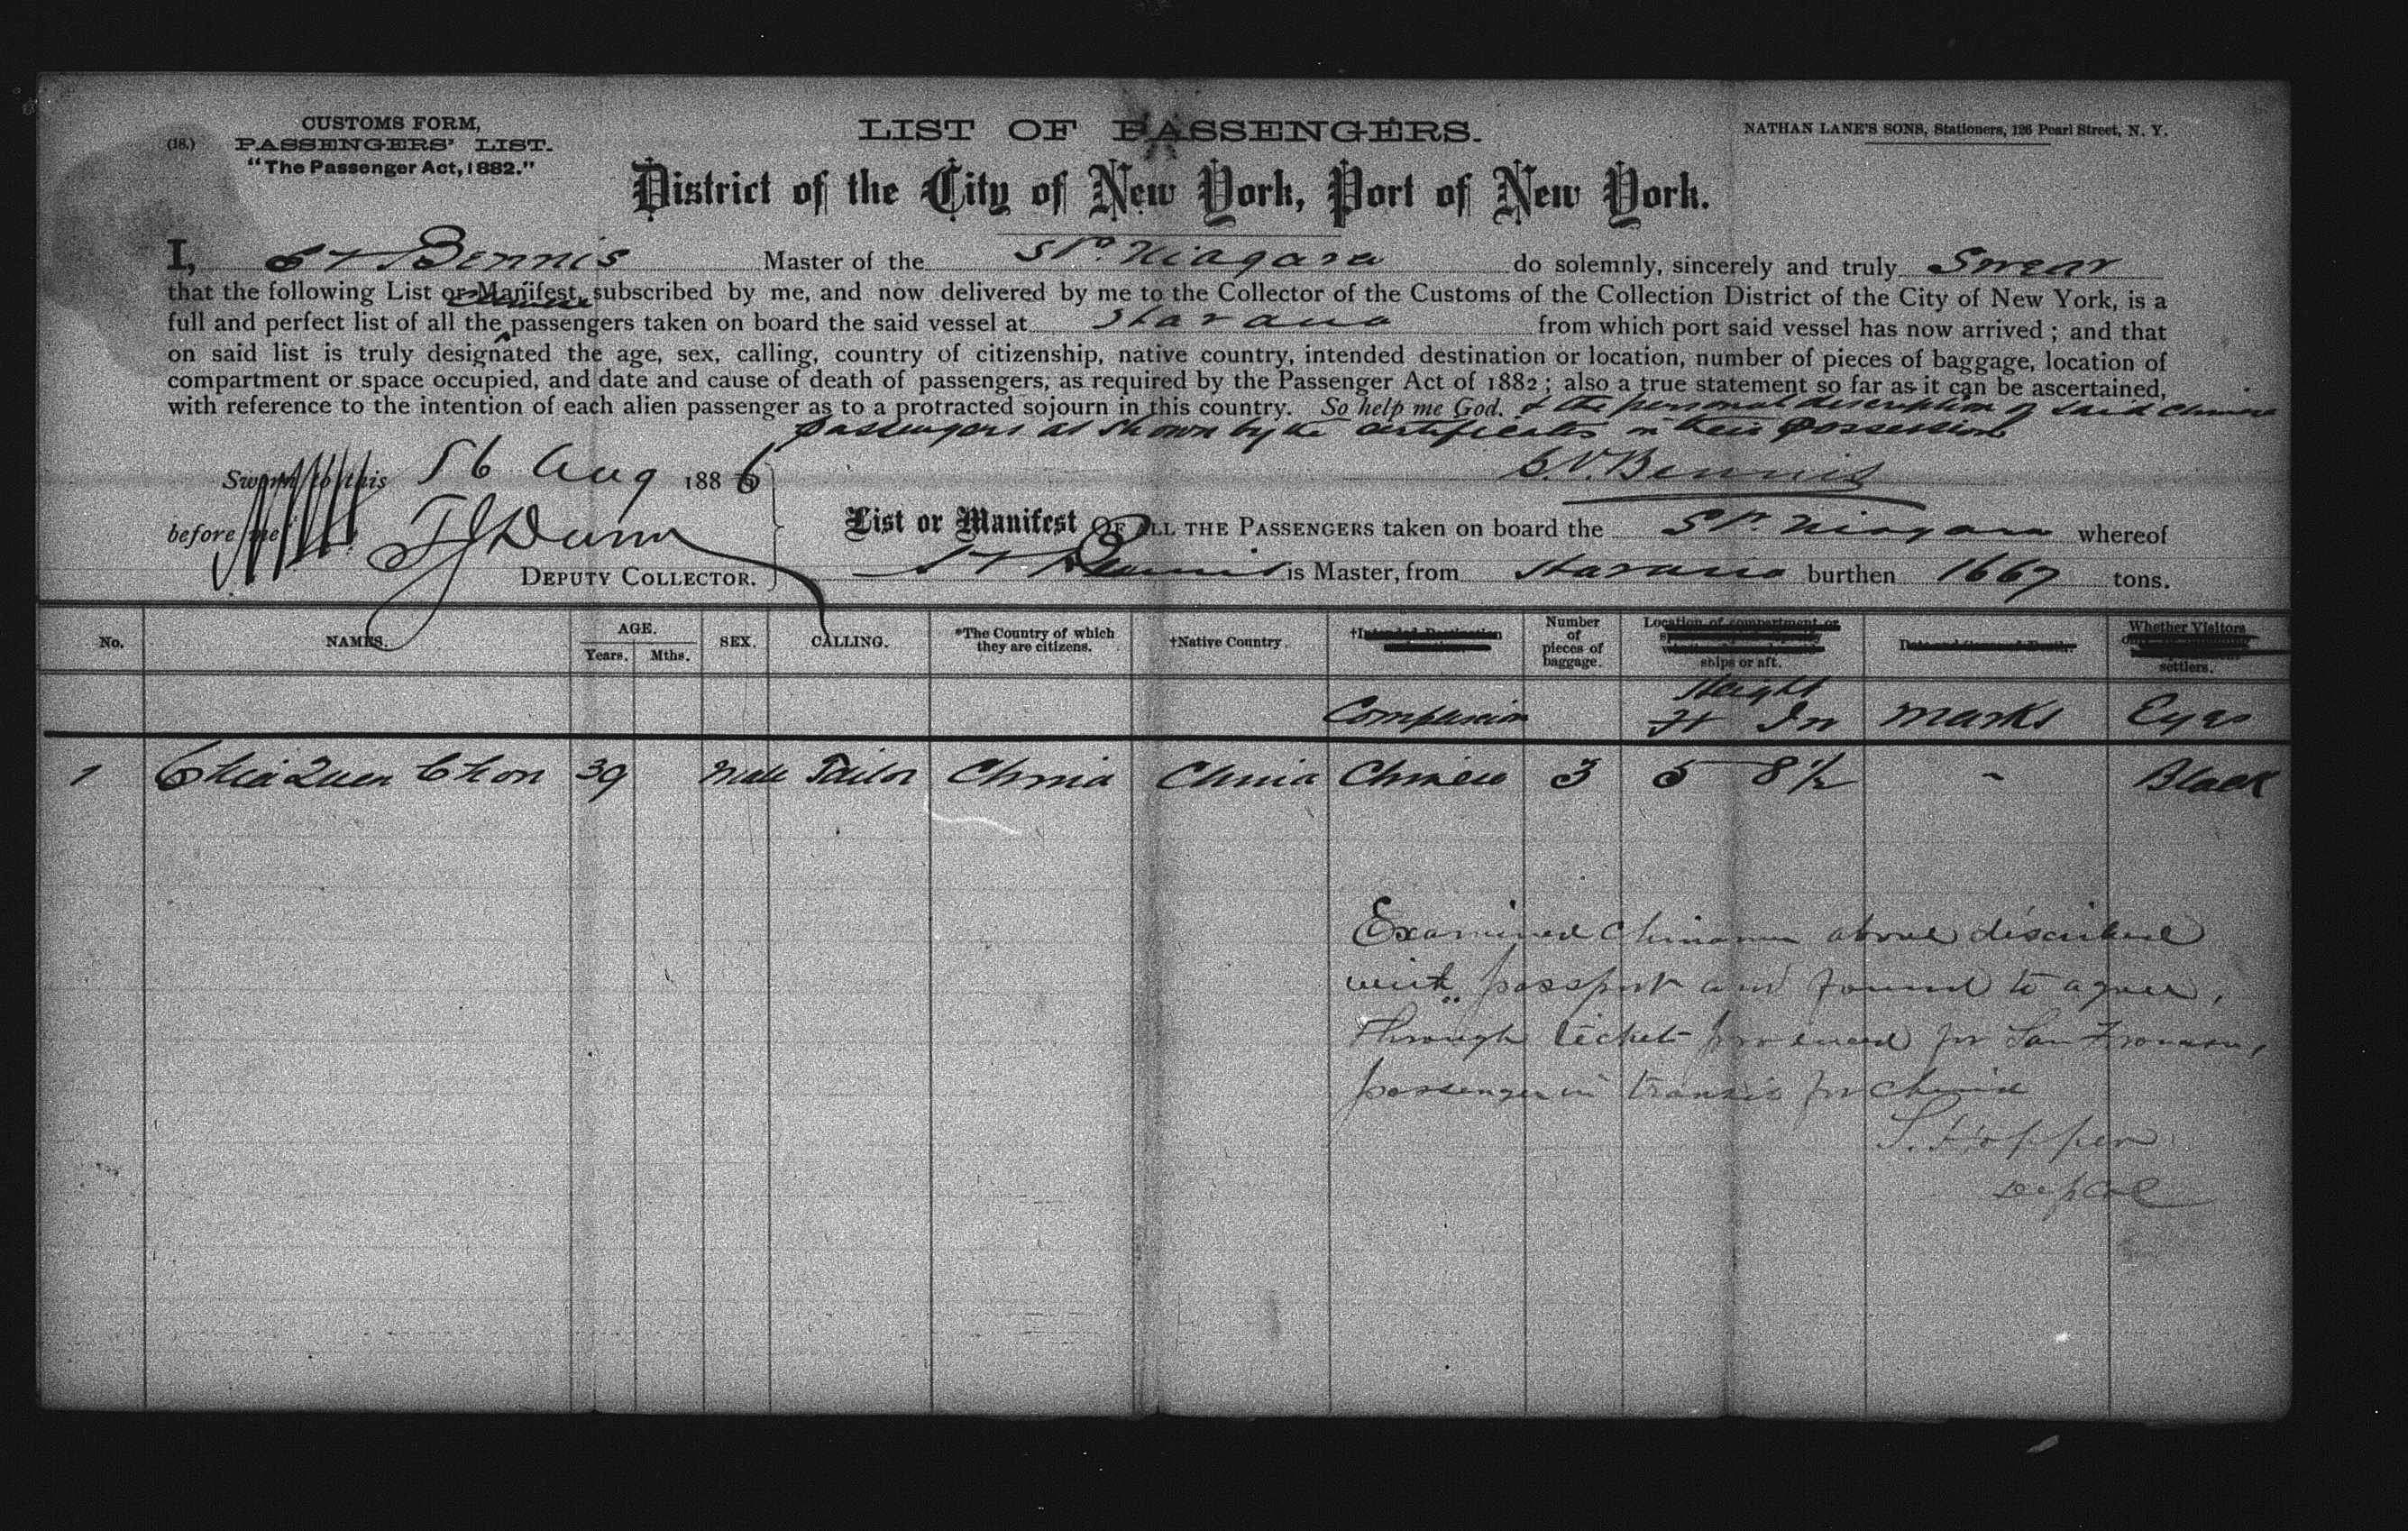 CUSTOMS FORM,
(18.) PASSENGERS' LIST.
"The Passenger Act, 1882."
LIST OF PASSENGERS.
NATHAN LANE'S SONS, Stationers, 126 Pearl Street, N. Y.
District of the City of New York, Port of New York.
I, Bennis Master of the Str. Niagara do solemnly, sincerely and truly Swear
that the following List or Manifest, subscribed by me, and now delivered by me to the Collector of the Customs of the Collection District of the City of New York, is a
Chinese
full and perfect list of all the passengers taken on board the said vessel at Havana from which port said vessel has now arrived; and that
on said list is truly designated the age, sex, calling, country of citizenship, native country, intended destination or location, number of pieces of baggage, location of
compartment or space occupied, and date and cause of death of passengers, as required by the Passenger Act of 1882; also a true statement so far as it can be ascertained,
with reference to the intention of each alien passenger as to a protracted sojourn in this country. So help me God. & the personal description of said Chinese
passengers as shown by the certificates in their possession
Sworn to this 16 Aug 1886
Bennis
before me TJ Dunn
DEPUTY COLLECTOR.
List or Manifest OF ALL THE PASSENGERS taken on board the Str. Niagara whereof
Bennis is Master, from Havana burthen 1667 tons.
No. NAMES. AGE. Years. Mths. SEX. CALLING. *The Country of which they are citizens. †Native Country. Number of pieces of baggage. Location of compartment or ships or aft. Whether Visitors settlers.
Complexion Height Ft In Marks Eyes
1 Chia Quen Chon 39 Male Tailor China China Chinese 3 5 8½ - Black
Examined Chinaman above described
with passport and found to agree,
Through ticket procured for San Francisco,
passenger in transit for China
S. Hopper
Dep Col